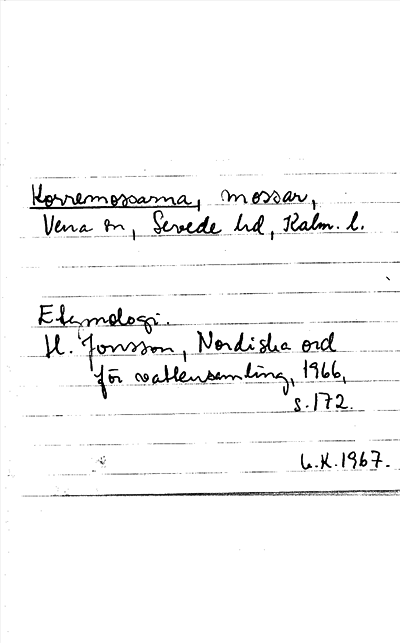 Korremossarna, mossar,
Vena sn, Sevede hd, Kalm. l.
Etymologi.
H. Jonsson, Nordiska ord
för vattensamling, 1966,
s. 172.
L.K. 1967.